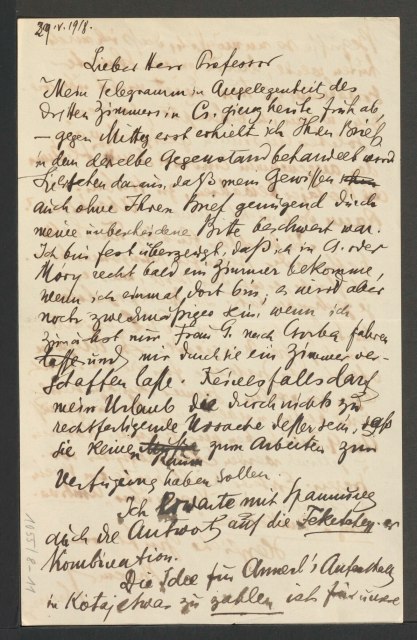 29.V.1918.
Lieber Herr Professor
Mein Telegramm in Angelegenheit des
dritten Zimmers in Cs. gieng heute früh ab,
— gegen Mittag erst erhielt ich Ihren Brief
in dem derselbe Gegenstand behandelt wird
Sie sehen daraus, daß mein Gewissen
auch ohne Ihren Brief genügend durch
meine unbescheidene Bitte beschwert war.
Ich bin fest überzeugt, daß ich in G. oder
recht bald ein Zimmer bekomme,
wenn ich einmal dort bin; es wird aber
noch zweckmäßiger sein, wenn ich
zunächst nur Frau G. nach Csorba fahren
lasse und mir durch sie ein Zimmer ver-
schaffen lasse. Keinesfalls darf
mein Urlaub die durch nichts zu
rechtfertigende Ursache dessen sein, daß
Sie keinen Raum zum Arbeiten zur
Verfügung haben sollen.
Ich erwarte mit Spannung
auch die Antwort auf die
Kombination.
Die Idee für Annerl's Aufenthalt
in Kótaj etwas zu zahlen ist für unse
11551811